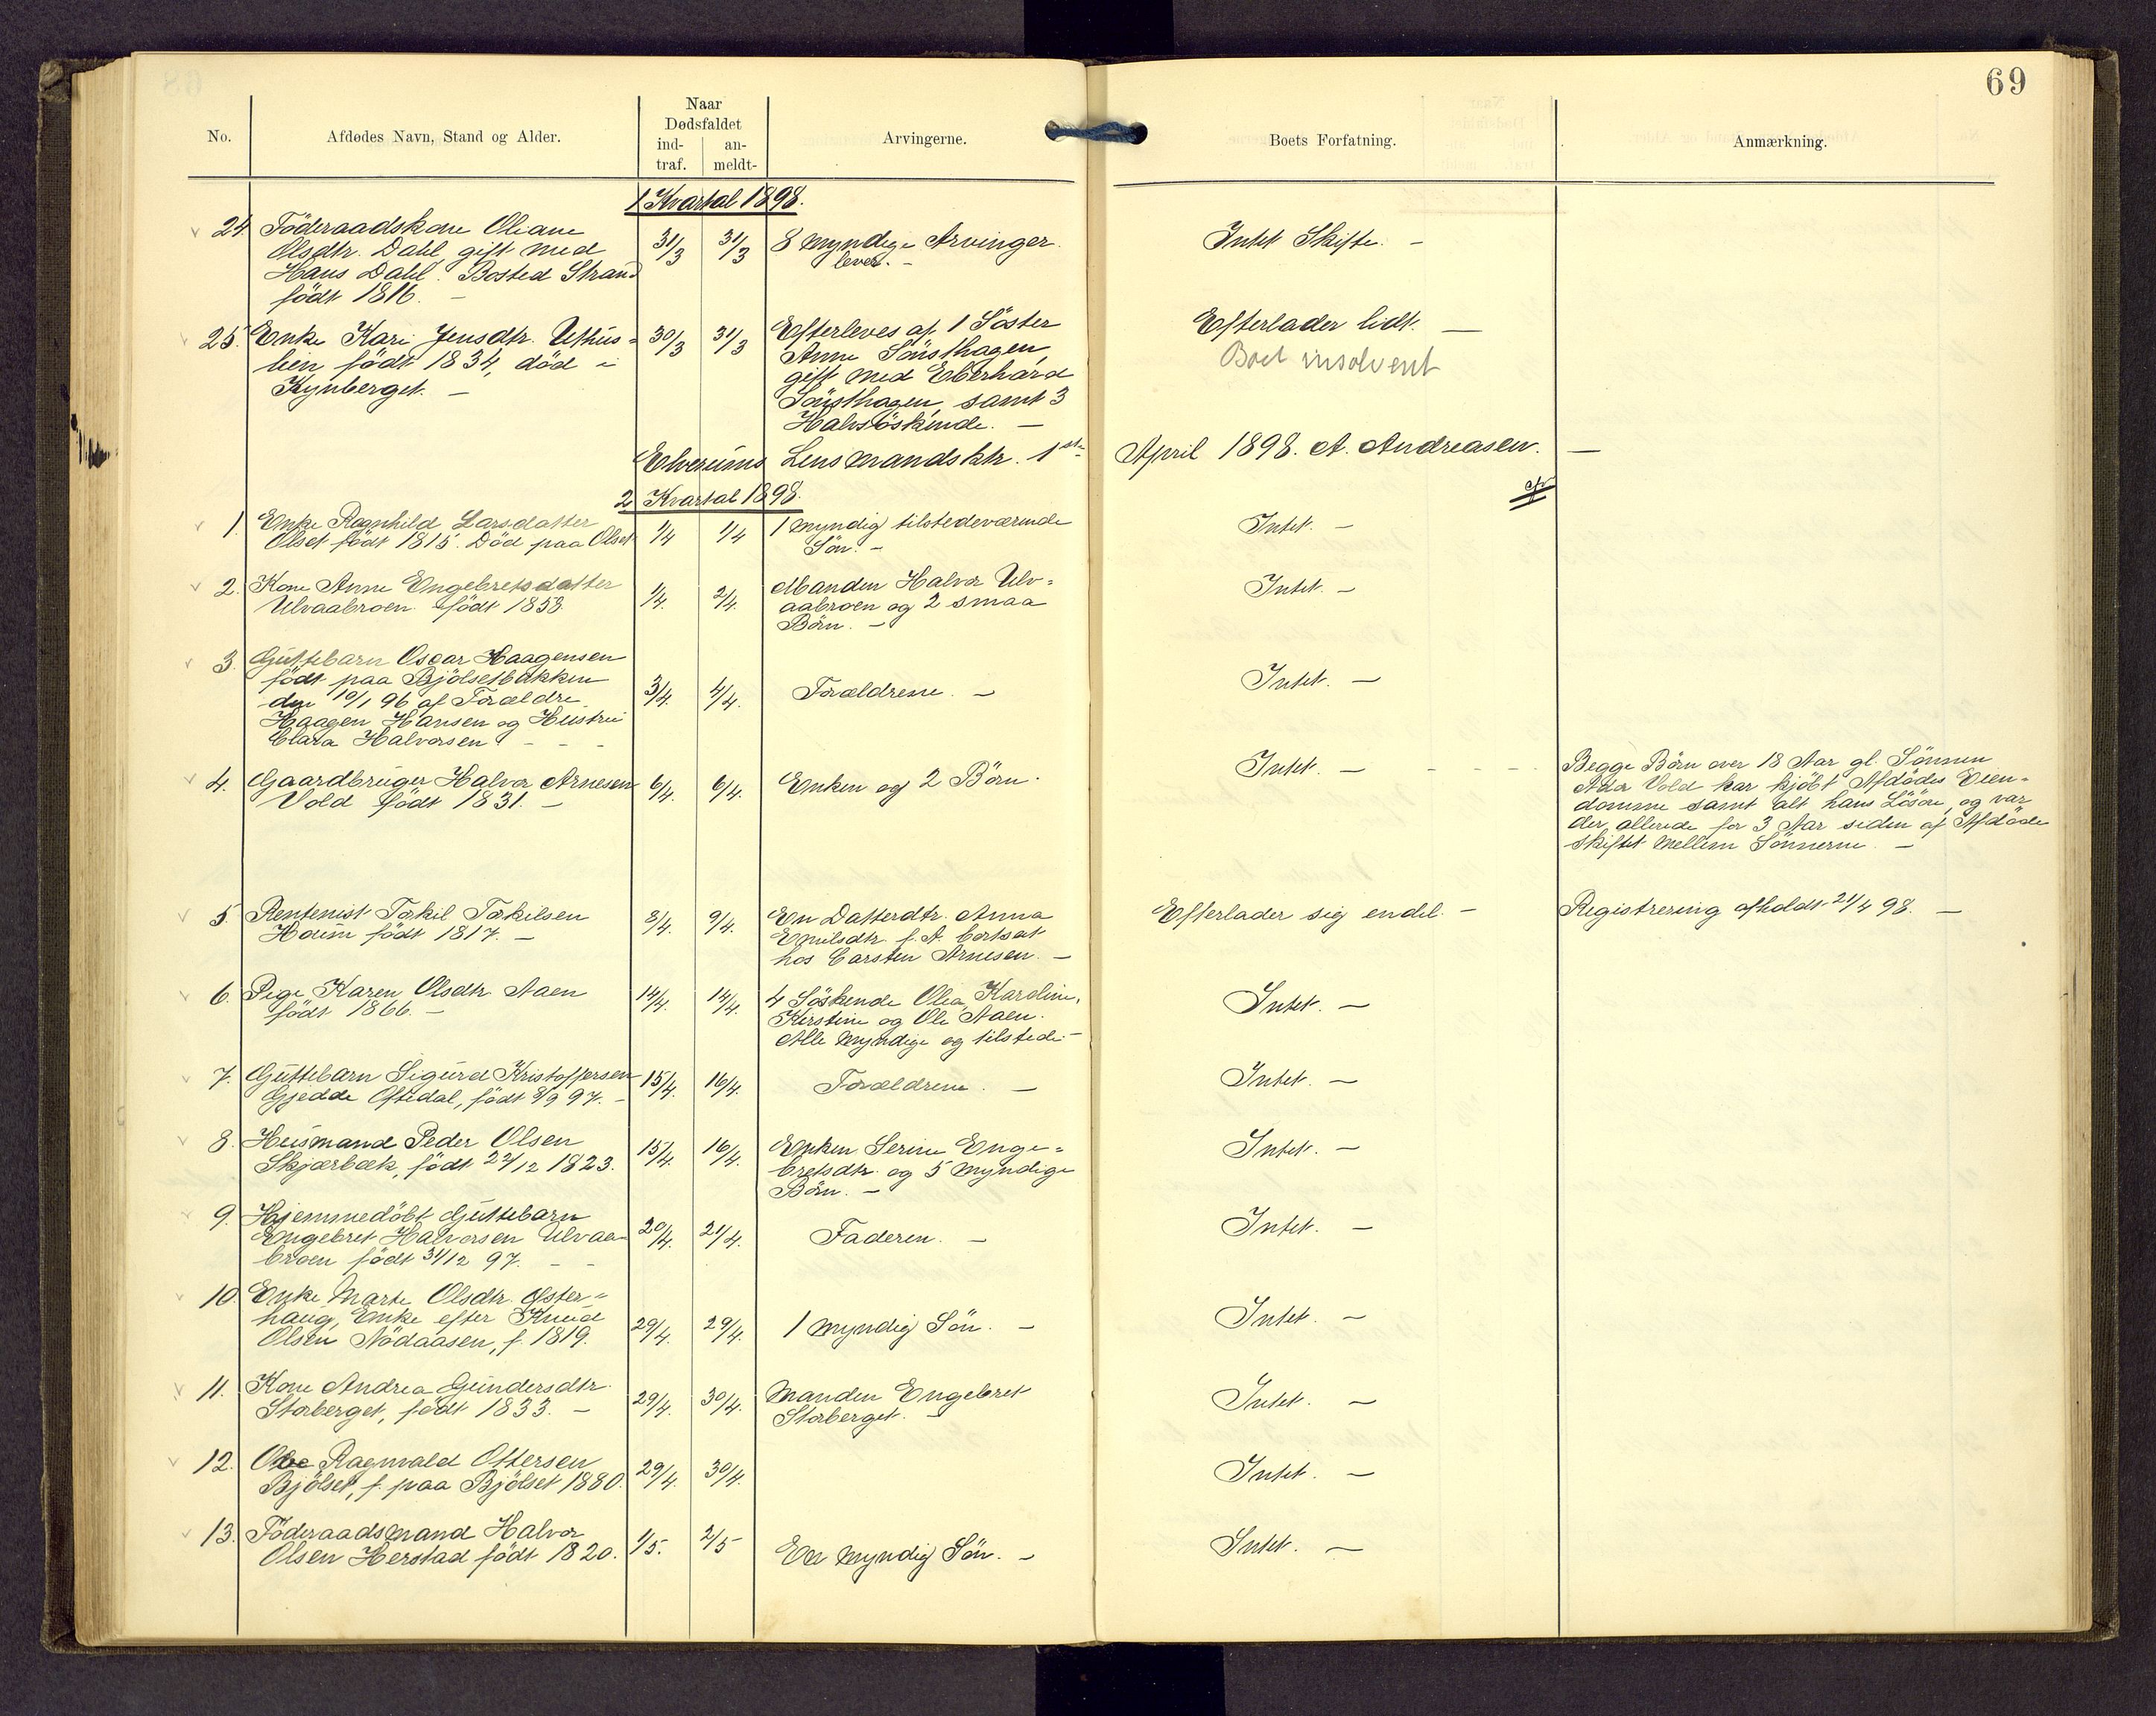 69
No.
Afdødes Navn, Stand og Alder.
Naar
Dødsfaldet
ind-
traf.
an-
meldt-
Arvingerne.
Boets Forfatning.
Anmærkning.
1 Kvartal 1898.
24. Föderaadskone Oliane 31/3 31/3 8 myndige Arvinger Intet Skifte. -
Olsdtr. Dahl, gift med lever. -
Hans Dahl. Bosted Strand
födt 1816. -
25. Enke Kari Jensdtr. Uthus= 30/3 31/3 Efterleves af 1 Söster Efterlader lidt. -
lien, födt 1834, död i Anne Sönsthagen, Boet insolvent
Kynberget. - gift med Eberhard
Sönsthagen, samt 3
Halvsöskende. -
Elverums Lensmandsktr. 1ste April 1898. A. Andreasen. -
2 Kvartal 1898.
1. Enke Ragnhild Larsdatter 1/4 1/4 1 myndig tilstedeværende Intet. -
Olset födt 1815. Död paa Olset Sön. -
2. Kone Anne Engebretsdatter 1/4. 2/4. Manden Halvor Ulv= Intet. -
Ulvaabroen födt 1858. aabroen og 2 smaa
Börn. -
3. Guttebarn Oscar Haagensen
födt paa Bjölsetbakken 3/4. 4/4. Forældrene. - Intet. -
den 10/1 96 af Forældre
Haagen Hansen og Hustru
Clara Halvorsen - - -
4. Gaardbruger Halvor Arnesen 6/4. 6/4. Enken og 2 Börn. Intet. - - - - - Begge Börn over 18 Aar gl. Sönnen
Vold födt 1831. - Vold har kjöbt Afdödes Eien=
domme samt alt hans Lösöre, og var
der allerede for 3 Aar siden af Afdöde
skiftet mellem Sönnerne. -
5. Rentenist Torkil Torkilsen 8/4. 9/4. En Datterdtr. Anna Efterlader sig endel. - Registrering afholdt 21/4 98. -
födt 1817. - Emilsdtr. f. A. bortsat
hos Carsten Arnesen. -
6. Pige Karen Olsdtr. Aaen 14/4. 14/4. 4 Söskende Olea, Karoline, Intet. -
födt 1866. - Kirstine og Ole Aaen.
Alle myndige og tilstede. -
7. Guttebarn Sigurd Kristoffersen 15/4. 16/4. Forældrene. - Intet. -
Gjedde Oftedal, födt 8/9 97. -
8. Husmand Peder Olsen 15/4. 16/4. Enken Serine Enge= Intet. -
Skjærbæk, födt 22/12 1823. bretsdtr. og 5 myndige
Börn. -
9. Hjemmedöbt Guttebarn
Engebret Halvorsen Ulvaa= 20/4. 21/4. Faderen. - Intet. -
broen födt 31/12 97. - -
10. Enke Marte Olsdtr. Öster=
haug, Enke efter Knud 29/4. 29/4. 1 myndig Sön. - Intet. -
Olsen Nödaasen, f. 1819.
11. Kone Andrea Gundersdtr. 29/4. 30/4. Manden Engebret Intet. -
Storberget, födt 1833. - Storberget. -
12. Ragnvald Ottersen 29/4. 30/4. Intet. -
Bjölset, f. paa Bjölset 1880.
13. Föderaadsmand Halvor 1/5. 2/5 En myndig Sön. - Intet. -
Olsen Herstad födt 1820.